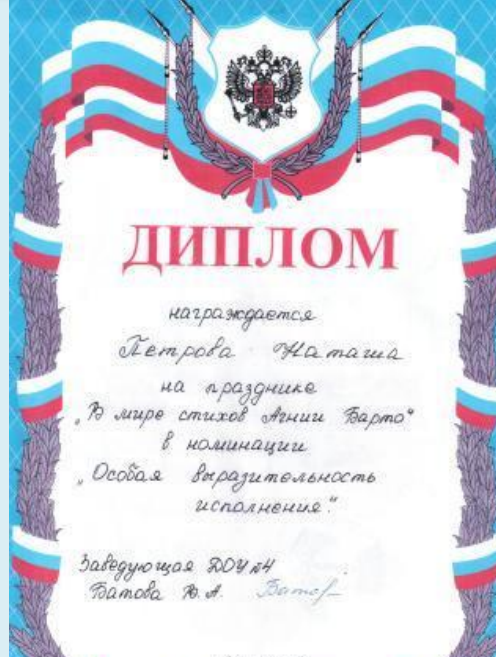 ДИПЛОМ
награждается
Петрова Наташа
на празднике
„В мире стихов Агнии Барто“
в номинации
„Особая выразительность
исполнения“.
Заведующая ДОУ №4
Батова В. А. Батов